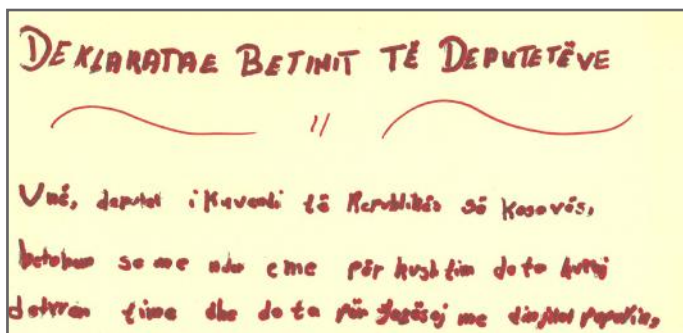 DEKLARATAE BETINIT TË DEPUTETËVE
Unë, deputet i Kuvendi të Republikës së Kosovës,
betohem se me nder e me përkushtim do ta kryej
detyrën time dhe do ta përfaqësoj me dinjitet popullin,